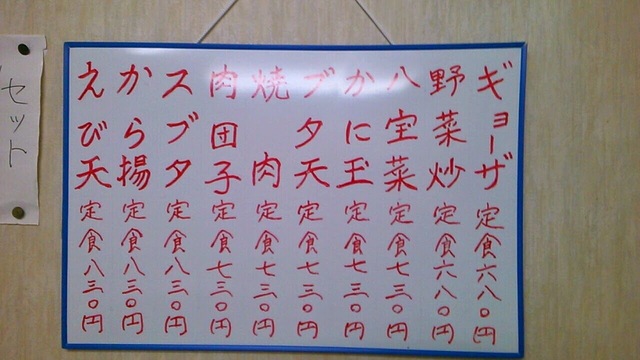 ギョーザ定食六八〇円
野菜炒定食六八〇円
八宝菜定食七三〇円
かに玉定食七三〇円
ブタ天定食七三〇円
焼肉定食七三〇円
肉団子定食七三〇円
スブタ定食八三〇円
から揚定食八三〇円
えび天定食八三〇円
セット